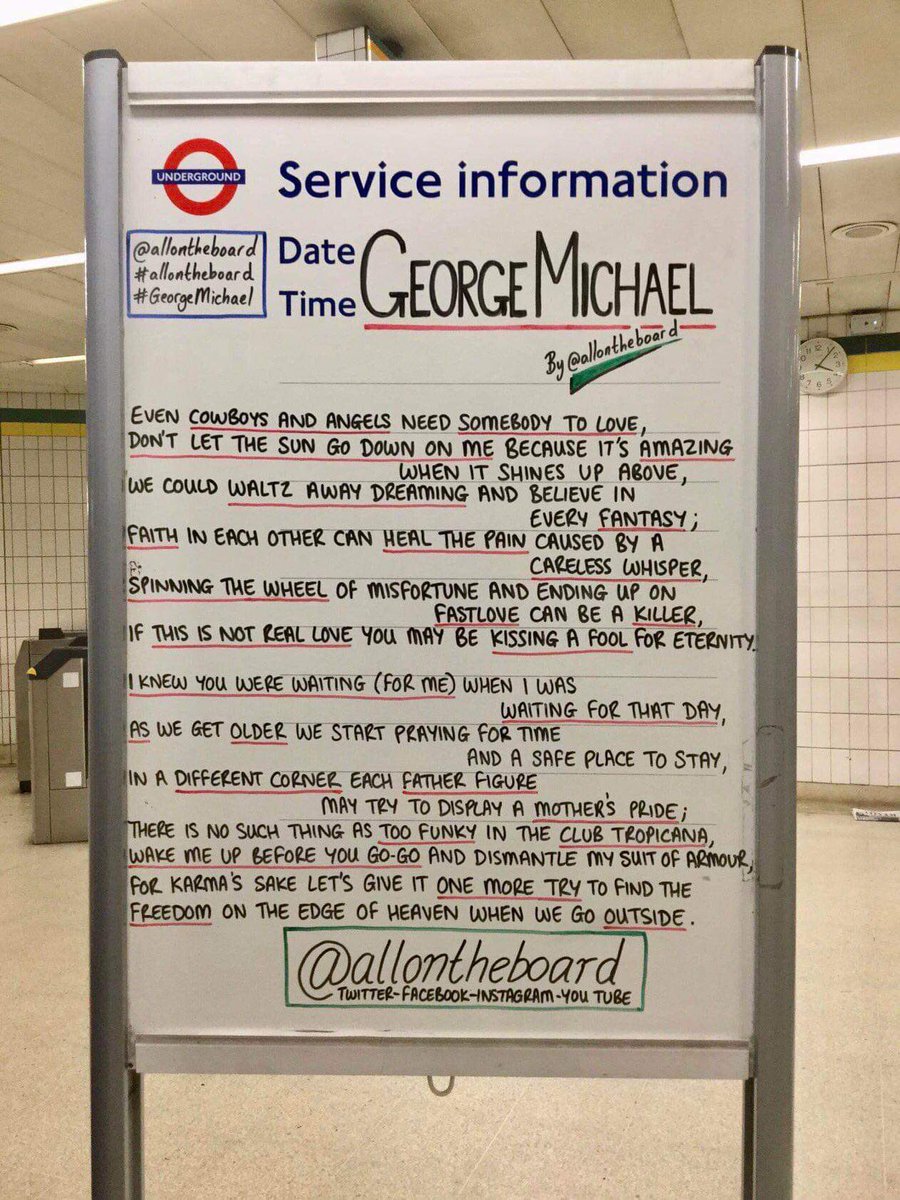 UNDERGROUND
Service information
@allontheboard
#allontheboard
#GeorgeMichael
Date
Time
GEORGE MICHAEL
By @allontheboard
EVEN COWBOYS AND ANGELS NEED SOMEBODY TO LOVE,
DON'T LET THE SUN GO DOWN ON ME BECAUSE IT'S AMAZING
WHEN IT SHINES UP ABOVE,
WE COULD WALTZ AWAY DREAMING AND BELIEVE IN
EVERY FANTASY;
FAITH IN EACH OTHER CAN HEAL THE PAIN CAUSED BY A
CARELESS WHISPER,
SPINNING THE WHEEL OF MISFORTUNE AND ENDING UP ON
FASTLOVE CAN BE A KILLER,
IF THIS IS NOT REAL LOVE YOU MAY BE KISSING A FOOL FOR ETERNITY.
I KNEW YOU WERE WAITING (FOR ME) WHEN I WAS
WAITING FOR THAT DAY,
AS WE GET OLDER WE START PRAYING FOR TIME
AND A SAFE PLACE TO STAY,
IN A DIFFERENT CORNER EACH FATHER FIGURE
MAY TRY TO DISPLAY A MOTHER'S PRIDE;
THERE IS NO SUCH THING AS TOO FUNKY IN THE CLUB TROPICANA,
WAKE ME UP BEFORE YOU GO-GO AND DISMANTLE MY SUIT OF ARMOUR,
FOR KARMA'S SAKE LET'S GIVE IT ONE MORE TRY TO FIND THE
FREEDOM ON THE EDGE OF HEAVEN WHEN WE GO OUTSIDE.
@allontheboard
TWITTER-FACEBOOK-INSTAGRAM-YOU TUBE